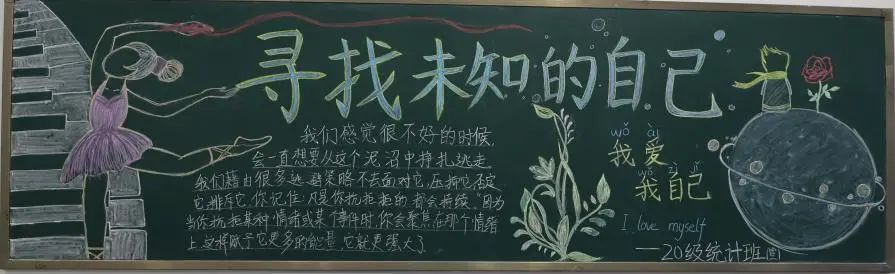 寻找未知的自己
我们感觉很不好的时候,
会一直想要从这个泥沼中挣扎逃走
我们藉由很多逃避策略不去面对它,压抑它,否定
它,排斥它,你记住,凡是你抗拒的都会持续.因为
当你抗拒某种情绪或某个事件时,你会聚焦在那个情绪
上,这样赋予它更多的能量,它就更强大了
wǒ ài
我爱
wǒ zì jǐ
我自己
I love myself
——20级统计班